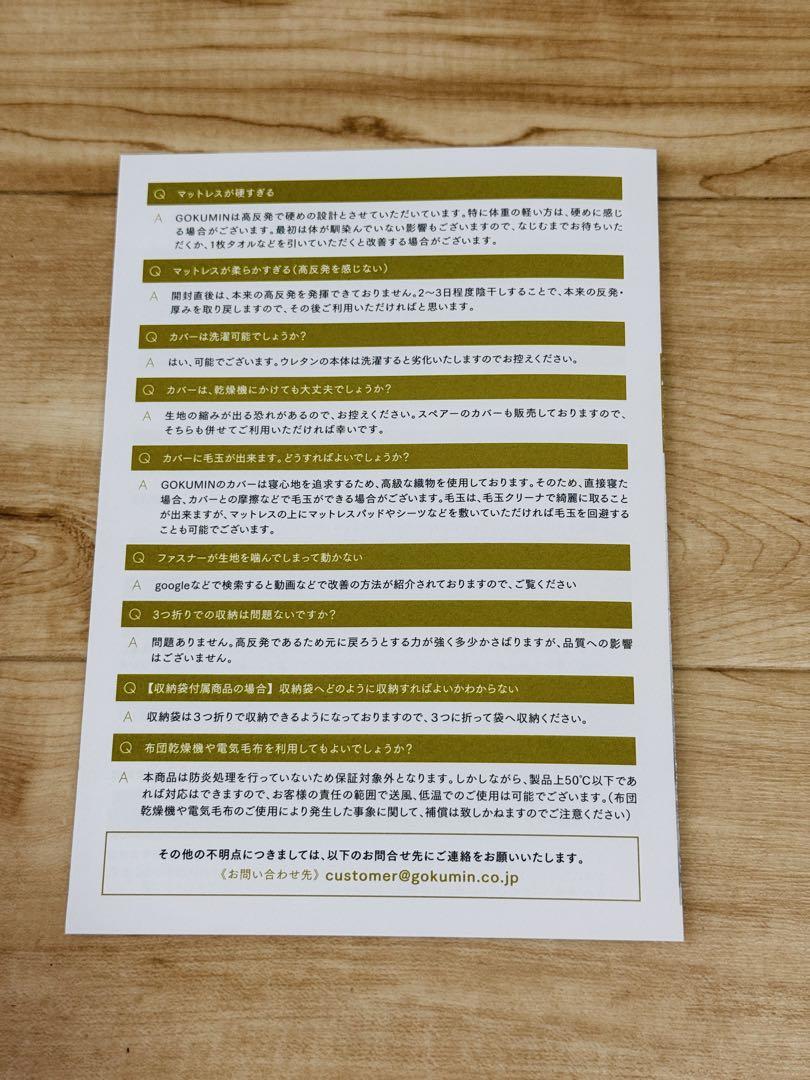 Q マットレスが硬すぎる
A GOKUMINは高反発で硬めの設計とさせていただいています。特に体重の軽い方は、硬めに感じ
る場合がございます。最初は体が馴染んでいない影響もございますので、なじむまでお待ちいた
だくか、1枚タオルなどを引いていただくと改善する場合がございます。
Q マットレスが柔らかすぎる(高反発を感じない)
A 開封直後は、本来の高反発を発揮できておりません。2〜3日程度陰干しすることで、本来の反発・
厚みを取り戻しますので、その後ご利用いただければと思います。
Q カバーは洗濯可能でしょうか?
A はい、可能でございます。ウレタンの本体は洗濯すると劣化いたしますのでお控えください。
Q カバーは、乾燥機にかけても大丈夫でしょうか?
A 生地の縮みが出る恐れがあるので、お控えください。スペアーのカバーも販売しておりますので、
そちらも併せてご利用いただければ幸いです。
Q カバーに毛玉が出来ます。どうすればよいでしょうか?
A GOKUMINのカバーは寝心地を追求するため、高級な織物を使用しております。そのため、直接寝た
場合、カバーとの摩擦などで毛玉ができる場合がございます。毛玉は、毛玉クリーナで綺麗に取ること
が出来ますが、マットレスの上にマットレスパッドやシーツなどを敷いていただければ毛玉を回避する
ことも可能でございます。
Q ファスナーが生地を噛んでしまって動かない
A googleなどで検索すると動画などで改善の方法が紹介されておりますので、ご覧ください
Q 3つ折りでの収納は問題ないですか?
A 問題ありません。高反発であるため元に戻ろうとする力が強く多少かさばりますが、品質への影響
はございません。
Q 【収納袋付属商品の場合】収納袋へどのように収納すればよいかわからない
A 収納袋は3つ折りで収納できるようになっておりますので、3つに折って袋へ収納ください。
Q 布団乾燥機や電気毛布を利用してもよいでしょうか?
A 本商品は防炎処理を行っていないため保証対象外となります。しかしながら、製品上50℃以下であ
れば対応はできますので、お客様の責任の範囲で送風、低温でのご使用は可能でございます。(布団
乾燥機や電気毛布のご使用により発生した事象に関して、補償は致しかねますのでご注意ください)
その他の不明点につきましては、以下のお問合せ先にご連絡をお願いいたします。
《お問い合わせ先》customer@gokumin.co.jp